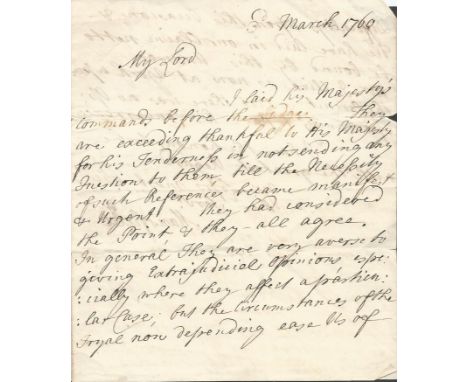 d March 1760
My Lord
I laid his Majesty's
commands before the Judges. They
are exceeding thankful to His Majesty
for his Tenderness in not sending any
Question to them, till the Necessity
of such Reference became manifest
& Urgent. They had considered
the Point, & they all agree.
In general They are very averse to
giving Extrajudicial Opinions espe:
:cially where they affect a particu:
:lar Case; but the circumstances of the
Tryal now depending ease Us of